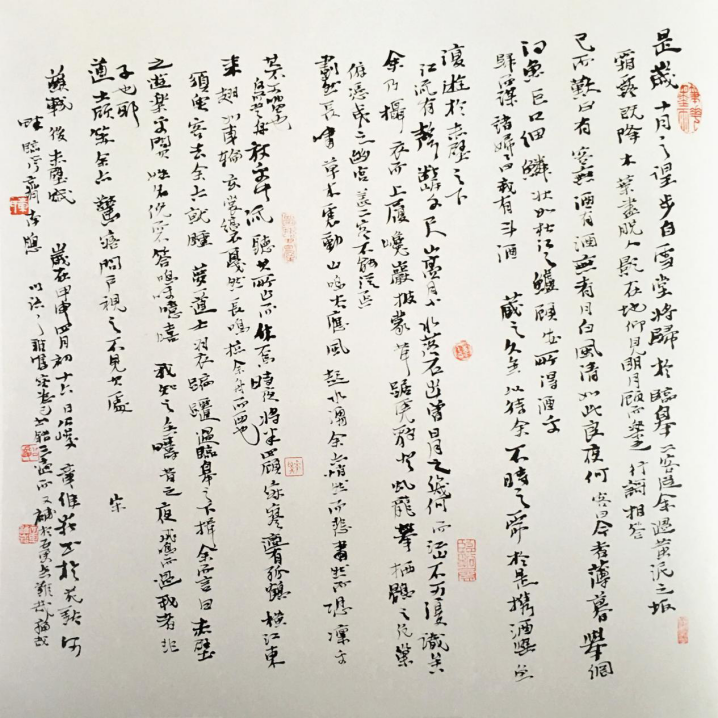 是歲十月之望步自雪堂將歸於臨皋二客從余過黃泥之坂
霜露既降木葉盡脫人影在地仰見明月顧而樂之行謌相答
已而歎曰有客無酒有酒無肴月白風清如此良夜何客曰今者薄暮舉網
得魚巨口細鱗狀如松江之鱸顧安所得酒乎
歸而謀諸婦婦曰我有斗酒藏之久矣以待余不時之需於是攜酒與魚
復遊於赤壁之下
江流有聲斷岸千尺山高月小水落石出曾日月之幾何而江山不可復識矣
余乃攝衣而上履巉巖披蒙茸踞虎豹登虬龍攀栖鶻之危巢
俯馮夷之幽宮蓋二客不能從焉
劃然長嘯草木震動山鳴谷應風起水涌余亦悄然而悲肅然而恐凜乎
其不可留也
反而登舟放乎中流聽其所止而休焉時夜將半四顧寂寥適有孤鶴橫江東
來翅如車輪玄裳縞衣戛然長鳴掠余舟而西也
須臾客去余亦就睡夢道士羽衣翩躚過臨皋之下揖余而言曰赤壁
之遊樂乎問其姓名俛而不答嗚呼噫嘻我知之矣疇昔之夜飛鳴而過我者非
子也耶
道士顧笑余亦驚寤開戶視之不見其處
蘇軾後赤壁賦 歲在甲申四月初十六日